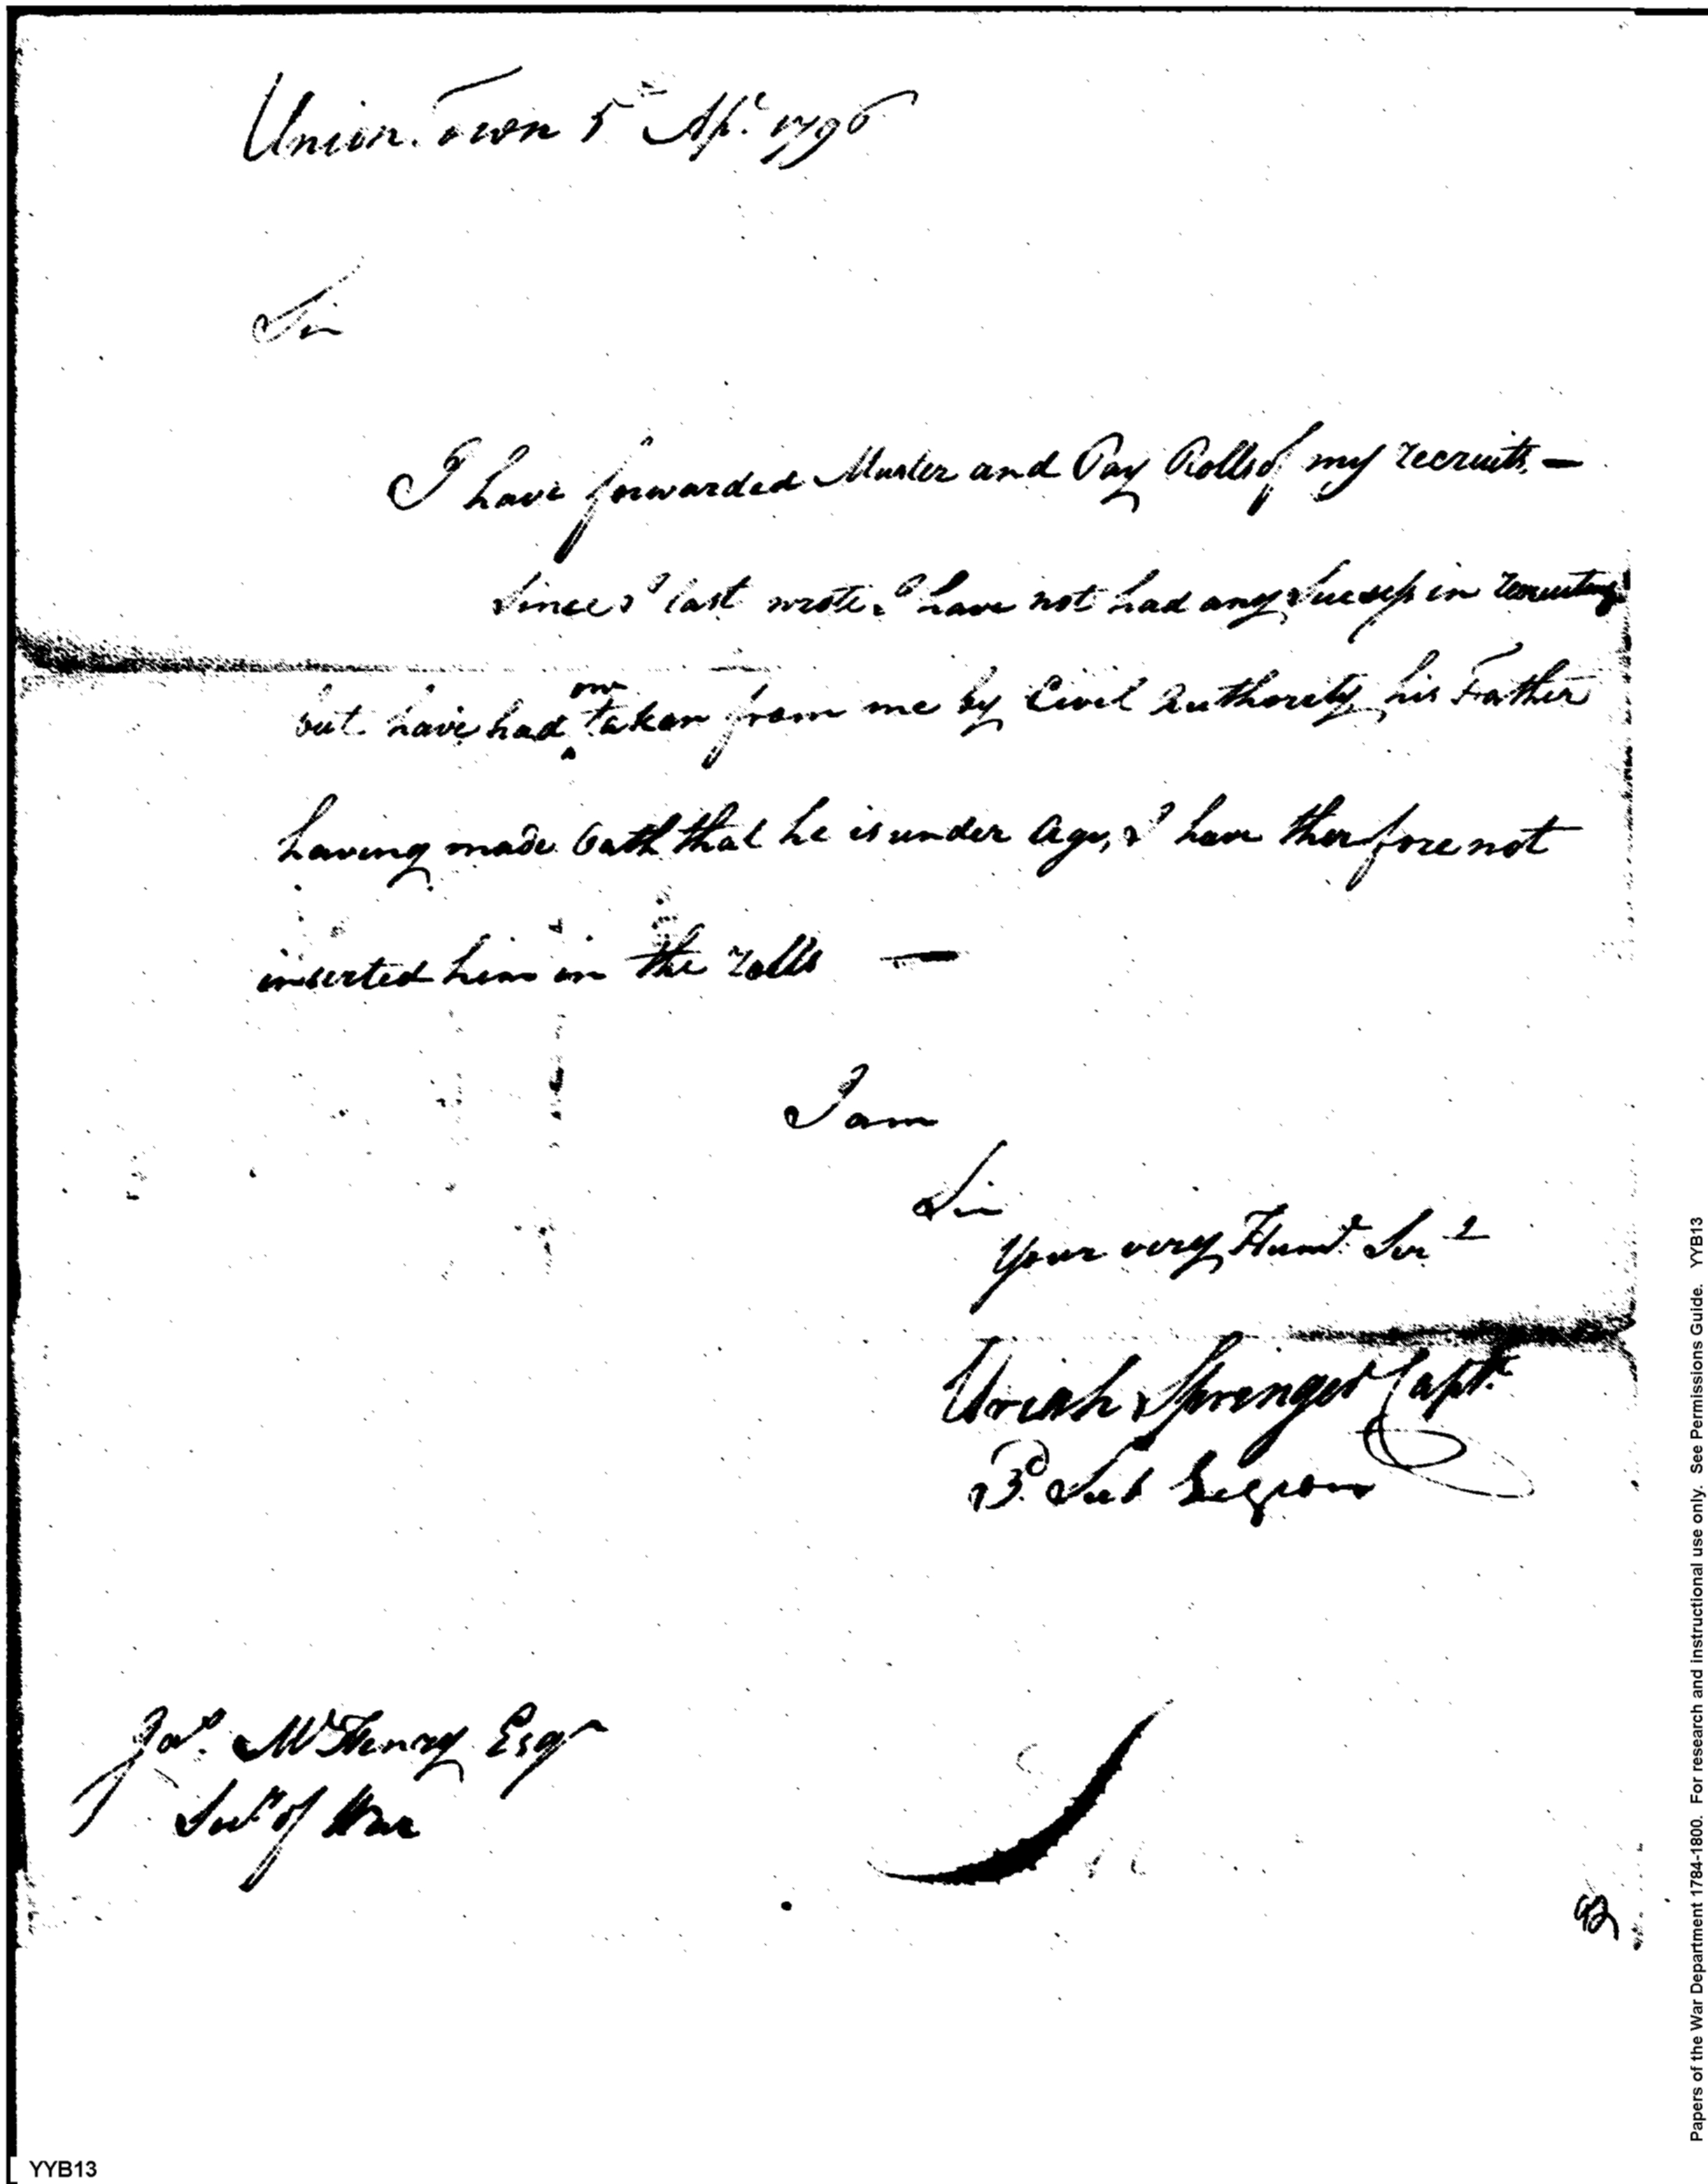 Union Town 5th Apl. 1796
Sir
I have forwarded Muster and Pay Rolls of my recruits —
Since I last wrote I have not had any Success in recruiting
but have had one taken from me by Civil Authority, his Father
having made Oath that he is under Age, I have therfore not
inserted him in the rolls —
I am
Sir
Your very Huml. Sert
Uriah Springer Capt.
3d. Sub Legion
Jas. McHenry Esqr
Secy of War
YYB13
Papers of the War Department 1784-1800. For research and instructional use only. See Permissions Guide. YYB13